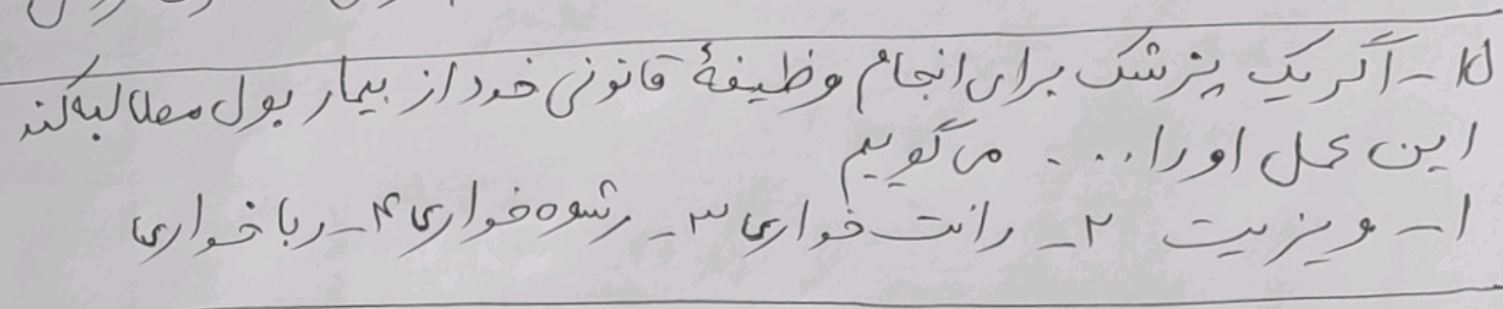 ۱۵- اگر یک پزشک برای انجام وظیفهٔ قانونی خود از بیمار پول مطالبه کند
این عمل او را ... می گوییم
۱- ویزیت ۲- رانت خواری ۳- رشوه خواری ۴- ربا خواری